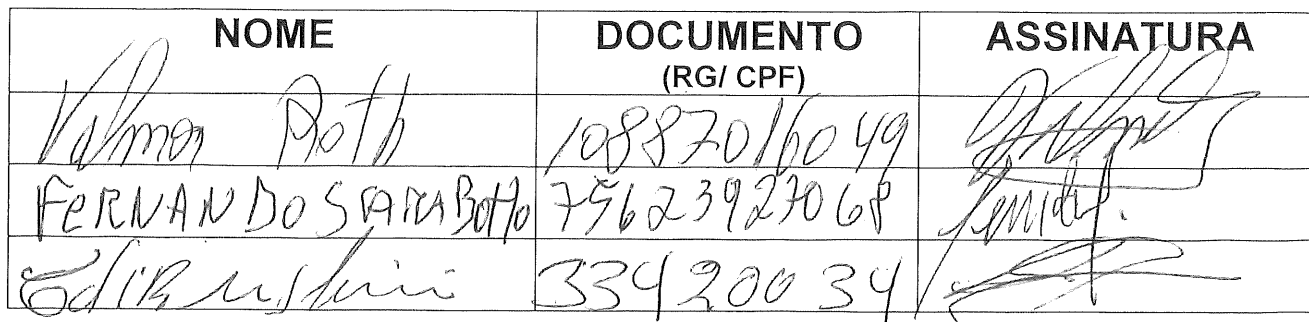 NOME DOCUMENTO ASSINATURA
(RG/ CPF)
Valmor Roth 10887016049
FERNANDO STARABOTTO 75623927068
33420034